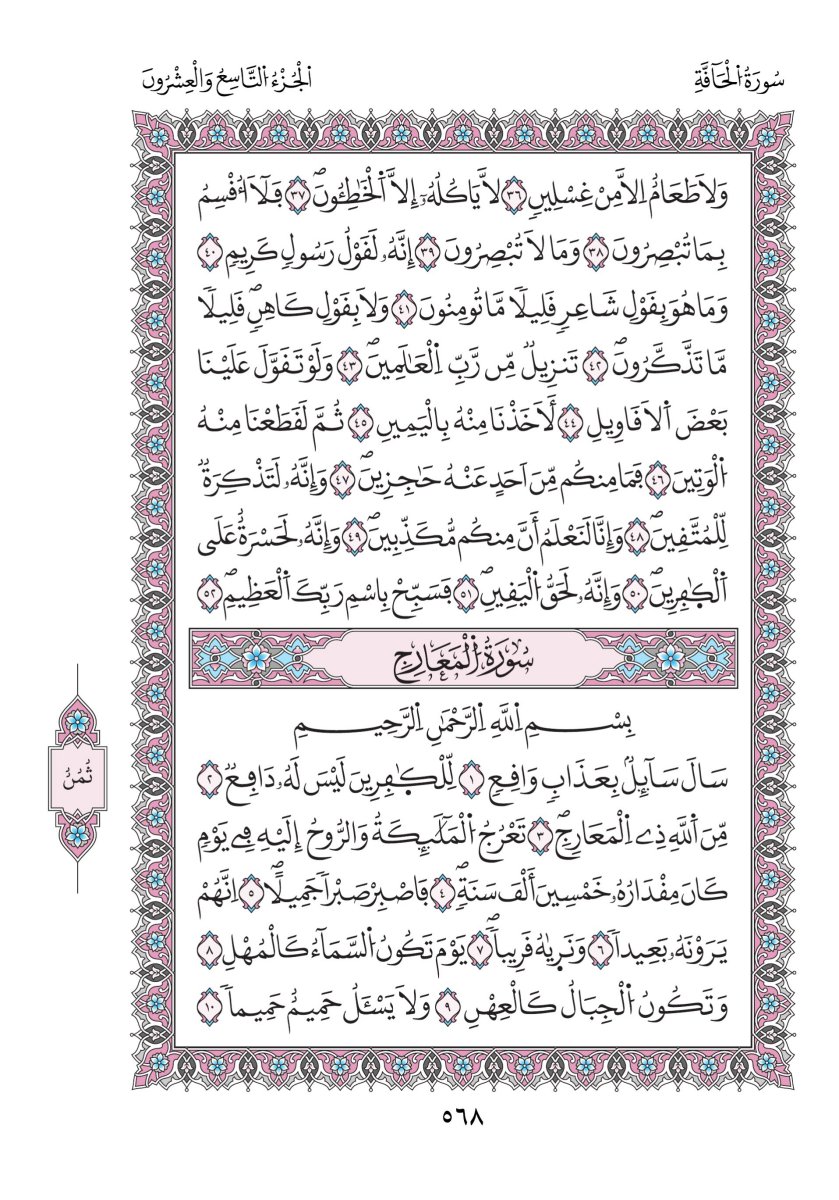 سُورَةُ اُ۬لْحَآقَّةِ
اَ۬لْجُزْءُ اُ۬لتَّاسِعُ وَالْعِشْرُونَ
وَلَا طَعَامٌ اِلَّا مِنْ غِسْلِينٖ ٣٦ لَّا يَاكُلُهُۥٓ إِلَّا اَ۬لْخَٰطِـُٔونَۖ ٣٧ فَلَآ أُقْسِمُ
بِمَا تُبْصِرُونَ ٣٨ وَمَا لَا تُبْصِرُونَ ٣٩ إِنَّهُۥ لَقَوْلُ رَسُولٖ كَرِيمٖ ٤٠
وَمَا هُوَ بِقَوْلِ شَاعِرٖ قَلِيلٗا مَّا تُومِنُونَ ٤١ وَلَا بِقَوْلِ كَاهِنٖۖ قَلِيلٗا
مَّا تَذَّكَّرُونَۖ ٤٢ تَنزِيلٞ مِّن رَّبِّ اِ۬لْعَٰلَمِينَۖ ٤٣ وَلَوْ تَقَوَّلَ عَلَيْنَا
بَعْضَ اَ۬لَاقَاوِيلِ ٤٤ لَأَخَذْنَا مِنْهُ بِالْيَمِينِ ٤٥ ثُمَّ لَقَطَعْنَا مِنْهُ
اُ۬لْوَتِينَ ٤٦ فَمَا مِنكُم مِّنَ اَحَدٍ عَنْهُ حَٰجِزِينَۖ ٤٧ وَإِنَّهُۥ لَتَذْكِرَةٞ
لِّلْمُتَّقِينَۖ ٤٨ وَإِنَّا لَنَعْلَمُ أَنَّ مِنكُم مُّكَذِّبِينَۖ ٤٩ وَإِنَّهُۥ لَحَسْرَةٌ عَلَى
اَ۬لْكٰ۪فِرِينَۖ ٥٠ وَإِنَّهُۥ لَحَقُّ اُ۬لْيَقِينِۖ ٥١ فَسَبِّحْ بِاسْمِ رَبِّكَ اَ۬لْعَظِيمِۖ ٥٢
سُورَةُ اُ۬لْمَعَارِجِ
بِسْمِ اِ۬للَّهِ اِ۬لرَّحْمَٰنِ اِ۬لرَّحِيمِ
سَالَ سَآئِلُۢ بِعَذَابٖ وَاقِعٖ ١ لِّلْكٰ۪فِرِينَ لَيْسَ لَهُۥ دَافِعٞ ٢
مِّنَ اَ۬للَّهِ ذِے اِ۬لْمَعَارِجِۖ ٣ تَعْرُجُ اُ۬لْمَلَٰٓئِكَةُ وَالرُّوحُ إِلَيْهِ فِے يَوْمٖ
كَانَ مِقْدَارُهُۥ خَمْسِينَ أَلْفَ سَنَةٖۖ ٤ فَاصْبِرْ صَبْراٗ جَمِيلًاۖ ٥ اِنَّهُمْ
يَرَوْنَهُۥ بَعِيداٗ ٦ وَنَر۪يٰهُ قَرِيباٗۖ ٧ يَوْمَ تَكُونُ اُ۬لسَّمَآءُ كَالْمُهْلِ ٨
وَتَكُونُ اُ۬لْجِبَالُ كَالْعِهْنِ ٩ وَلَا يَسْـَٔلُ حَمِيمٌ حَمِيماٗ ١٠
ثُمُنُ
٥٦٨